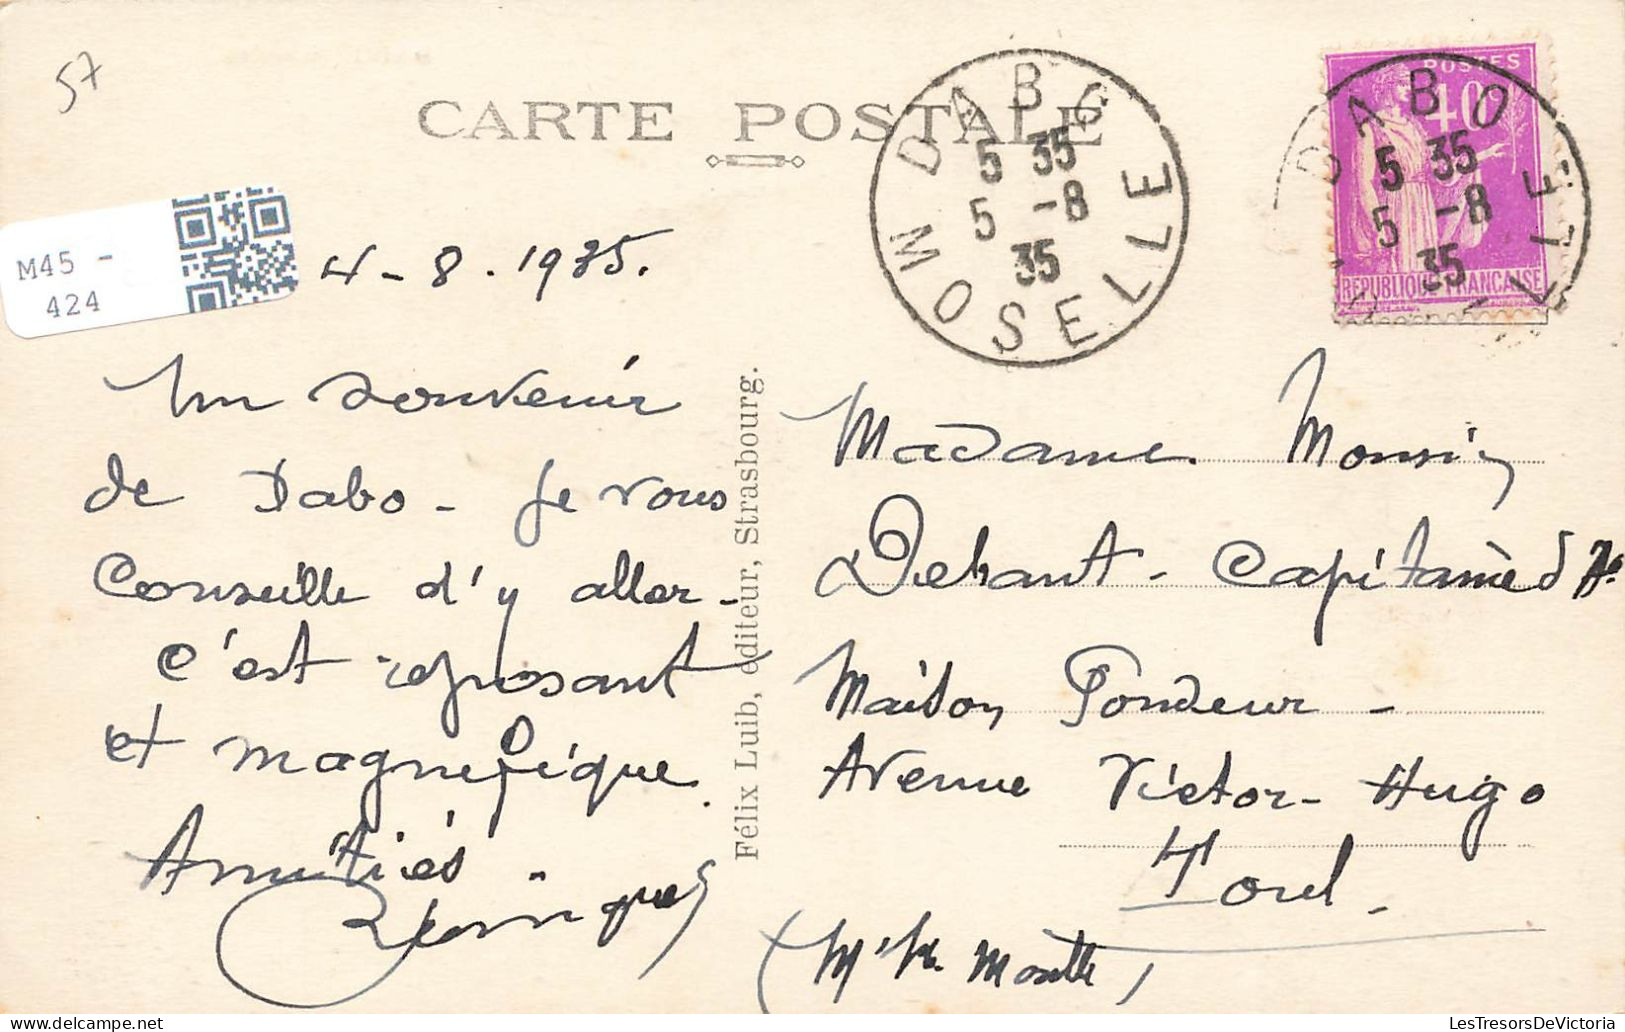 57
CARTE POSTALE
M45 -
424
4-8.1935.
Un souvenir
de Dabo - Je vous
conseille d'y aller -
c'est reposant
et magnifique.
Amitiés
Félix Luib, éditeur, Strasbourg.
DABO
5 35
5 -8
35
MOSELLE
POSTES
40c
REPUBLIQUE FRANCAISE
DABO
5 35
5 -8
35
Madame
Dehant - Capitaine d'
Maison Fondeur -
Avenue Victor-Hugo
Toul.
LesTresorsDeVictoria